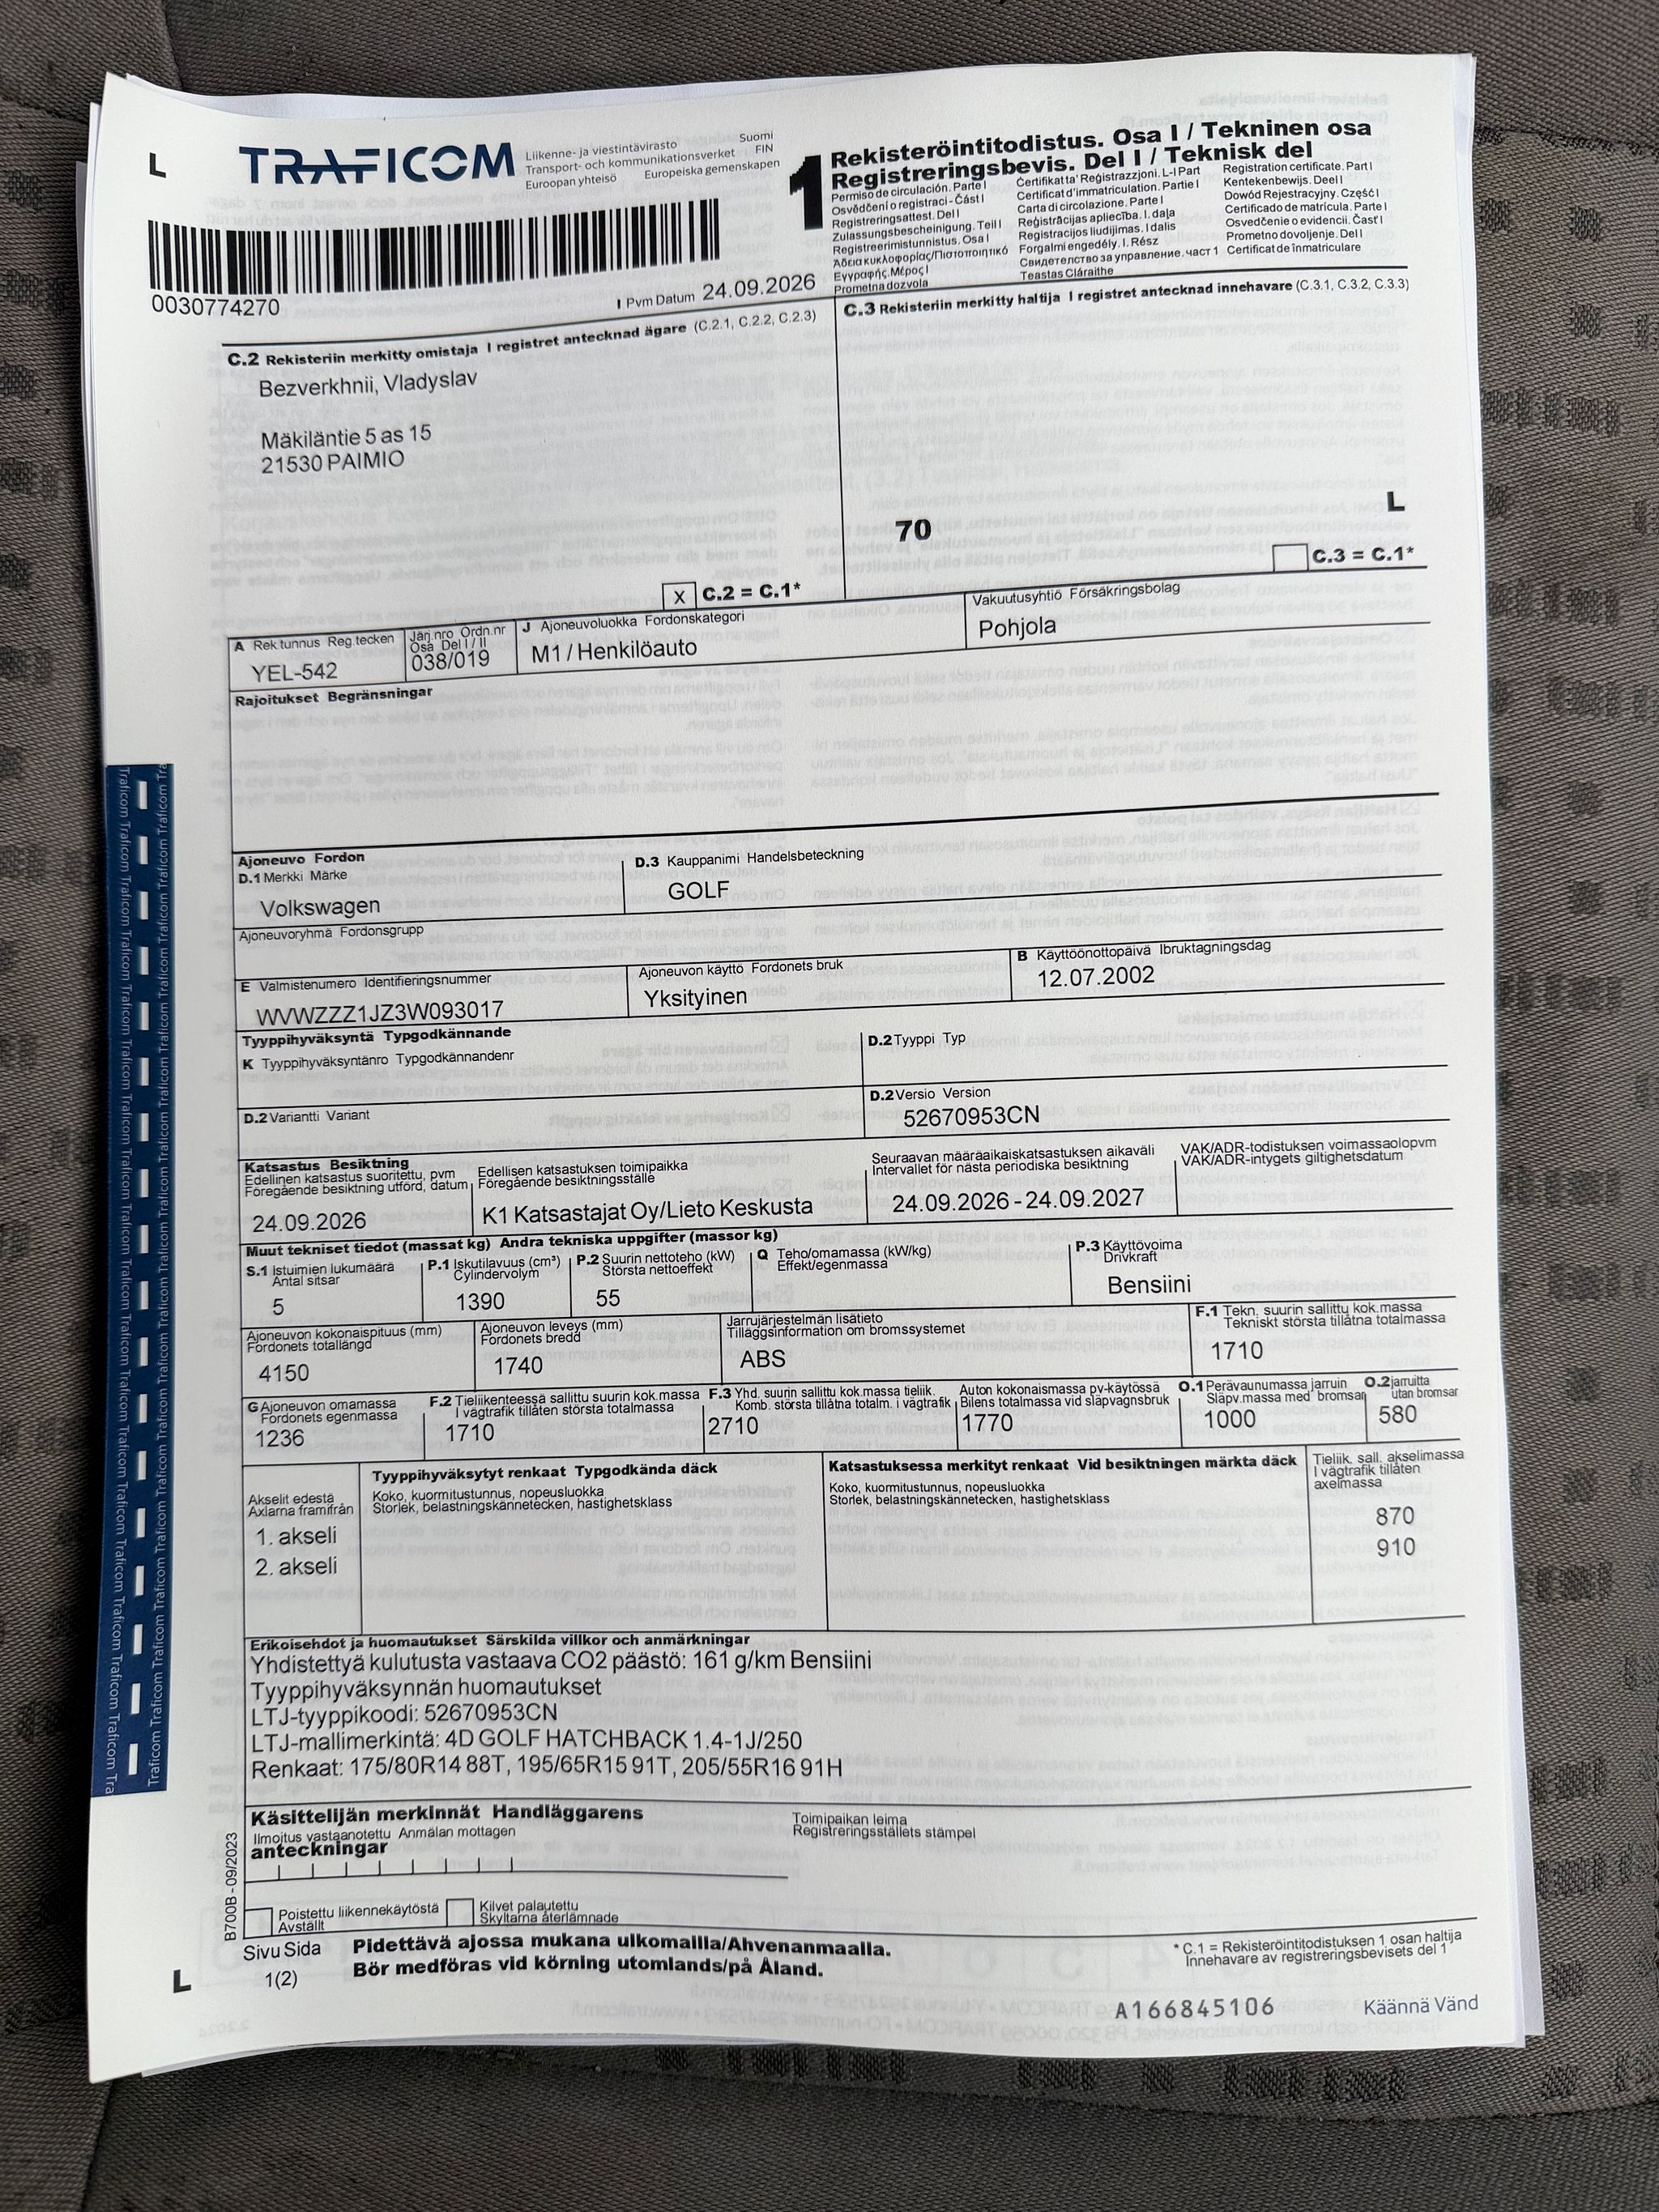 L
TRAFICOM
Liikenne- ja viestintävirasto Suomi
Transport- och kommunikationsverket FIN
Euroopan yhteisö Europeiska gemenskapen
1
Rekisteröintitodistus. Osa I / Tekninen osa
Registreringsbevis. Del I / Teknisk del
Permiso de circulación. Parte I
Osvědčení o registraci - Část I
Registreringsattest. Del I
Zulassungsbescheinigung. Teil I
Registreerimistunnistus. Osa I
Άδεια κυκλοφορίας/Πιστοποιητικό
Εγγραφής. Μέρος I
Prometna dozvola
Ċertifikat ta' Reġistrazzjoni. L-I Part
Certificat d'immatriculation. Partie I
Carta di circolazione. Parte I
Reģistrācijas apliecība. I. daļa
Registracijos liudijimas. I dalis
Forgalmi engedély. I. Rész
Свидетелство за управление. част 1
Teastas Cláraithe
Registration certificate. Part I
Kentekenbewijs. Deel I
Dowód Rejestracyjny. Część I
Certificado de matrícula. Parte I
Osvedčenie o evidencii. Časť I
Prometno dovoljenje. Del I
Certificat de înmatriculare
0030774270
I Pvm Datum 24.09.2026
C.2 Rekisteriin merkitty omistaja I registret antecknad ägare (C.2.1, C.2.2, C.2.3)
Bezverkhnii, Vladyslav
Mäkiläntie 5 as 15
21530 PAIMIO
X C.2 = C.1*
C.3 Rekisteriin merkitty haltija I registret antecknad innehavare (C.3.1, C.3.2, C.3.3)
70
L
C.3 = C.1*
A Rek.tunnus Reg.tecken
YEL-542
Järj.nro Ordn.nr
Osa Del I / II
038/019
J Ajoneuvoluokka Fordonskategori
M1 / Henkilöauto
Vakuutusyhtiö Försäkringsbolag
Pohjola
Rajoitukset Begränsningar
Ajoneuvo Fordon
D.1 Merkki Märke
Volkswagen
D.3 Kauppanimi Handelsbeteckning
GOLF
Ajoneuvoryhmä Fordonsgrupp
E Valmistenumero Identifieringsnummer
WVWZZZ1JZ3W093017
Ajoneuvon käyttö Fordonets bruk
Yksityinen
B Käyttöönottopäivä Ibruktagningsdag
12.07.2002
Tyyppihyväksyntä Typgodkännande
K Tyyppihyväksyntänro Typgodkännandenr
D.2 Tyyppi Typ
D.2 Variantti Variant
D.2 Versio Version
52670953CN
Katsastus Besiktning
Edellinen katsastus suoritettu, pvm
Föregående besiktning utförd, datum
24.09.2026
Edellisen katsastuksen toimipaikka
Föregående besiktningsställe
K1 Katsastajat Oy/Lieto Keskusta
Seuraavan määräaikaiskatsastuksen aikaväli
Intervallet för nästa periodiska besiktning
24.09.2026 - 24.09.2027
VAK/ADR-todistuksen voimassaolopvm
VAK/ADR-intygets giltighetsdatum
Muut tekniset tiedot (massat kg) Andra tekniska uppgifter (massor kg)
S.1 Istuimien lukumäärä
Antal sitsar
5
P.1 Iskutilavuus (cm³)
Cylindervolym
1390
P.2 Suurin nettoteho (kW)
Största nettoeffekt
55
Q Teho/omamassa (kW/kg)
Effekt/egenmassa
P.3 Käyttövoima
Drivkraft
Bensiini
Ajoneuvon kokonaispituus (mm)
Fordonets totallängd
4150
Ajoneuvon leveys (mm)
Fordonets bredd
1740
Jarrujärjestelmän lisätieto
Tilläggsinformation om bromssystemet
ABS
F.1 Tekn. suurin sallittu kok.massa
Tekniskt största tillåtna totalmassa
1710
G Ajoneuvon omamassa
Fordonets egenmassa
1236
F.2 Tieliikenteessä sallittu suurin kok.massa
I vägtrafik tillåten största totalmassa
1710
F.3 Yhd. suurin sallittu kok.massa tieliik.
Komb. största tillåtna totalm. i vägtrafik
2710
Auton kokonaismassa pv-käytössä
Bilens totalmassa vid släpvagnsbruk
1770
O.1 Perävaunumassa jarruin
Släpv.massa med bromsar
1000
O.2 jarruitta
utan bromsar
580
Akselit edestä
Axlarna framifrån
1. akseli
2. akseli
Tyyppihyväksytyt renkaat Typgodkända däck
Koko, kuormitustunnus, nopeusluokka
Storlek, belastningskännetecken, hastighetsklass
Katsastuksessa merkityt renkaat Vid besiktningen märkta däck
Koko, kuormitustunnus, nopeusluokka
Storlek, belastningskännetecken, hastighetsklass
Tieliik. sall. akselimassa
I vägtrafik tillåten
axelmassa
870
910
Erikoisehdot ja huomautukset Särskilda villkor och anmärkningar
Yhdistettyä kulutusta vastaava CO2 päästö: 161 g/km Bensiini
Tyyppihyväksynnän huomautukset
LTJ-tyyppikoodi: 52670953CN
LTJ-mallimerkintä: 4D GOLF HATCHBACK 1.4-1J/250
Renkaat: 175/80R14 88T, 195/65R15 91T, 205/55R16 91H
Käsittelijän merkinnät Handläggarens
Ilmoitus vastaanotettu Anmälan mottagen
anteckningar
Toimipaikan leima
Registreringsställets stämpel
Poistettu liikennekäytöstä
Avställt
Kilvet palautettu
Skyltarna återlämnade
B700B - 09/2023
Sivu Sida
1(2)
Pidettävä ajossa mukana ulkomailla/Ahvenanmaalla.
Bör medföras vid körning utomlands/på Åland.
* C.1 = Rekisteröintitodistuksen 1 osan haltija
Innehavare av registreringsbevisets del 1
L
A166845106
Käännä Vänd